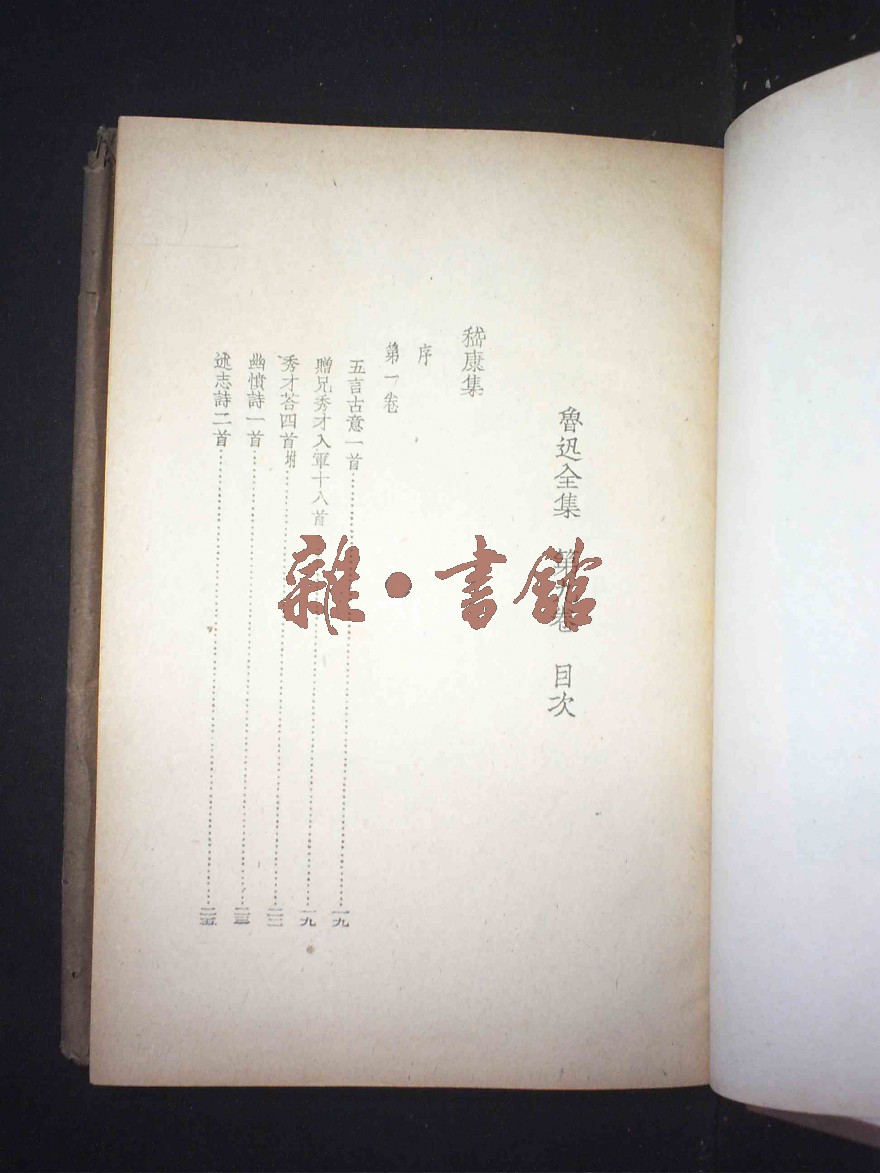 魯迅全集 第九卷 目次
嵇康集
序
第一卷
五言古意一首……一九
贈兄秀才入軍十八首……一九
秀才荅四首附……二二
幽憤詩一首……二三
述志詩二首……二五
雜·書館